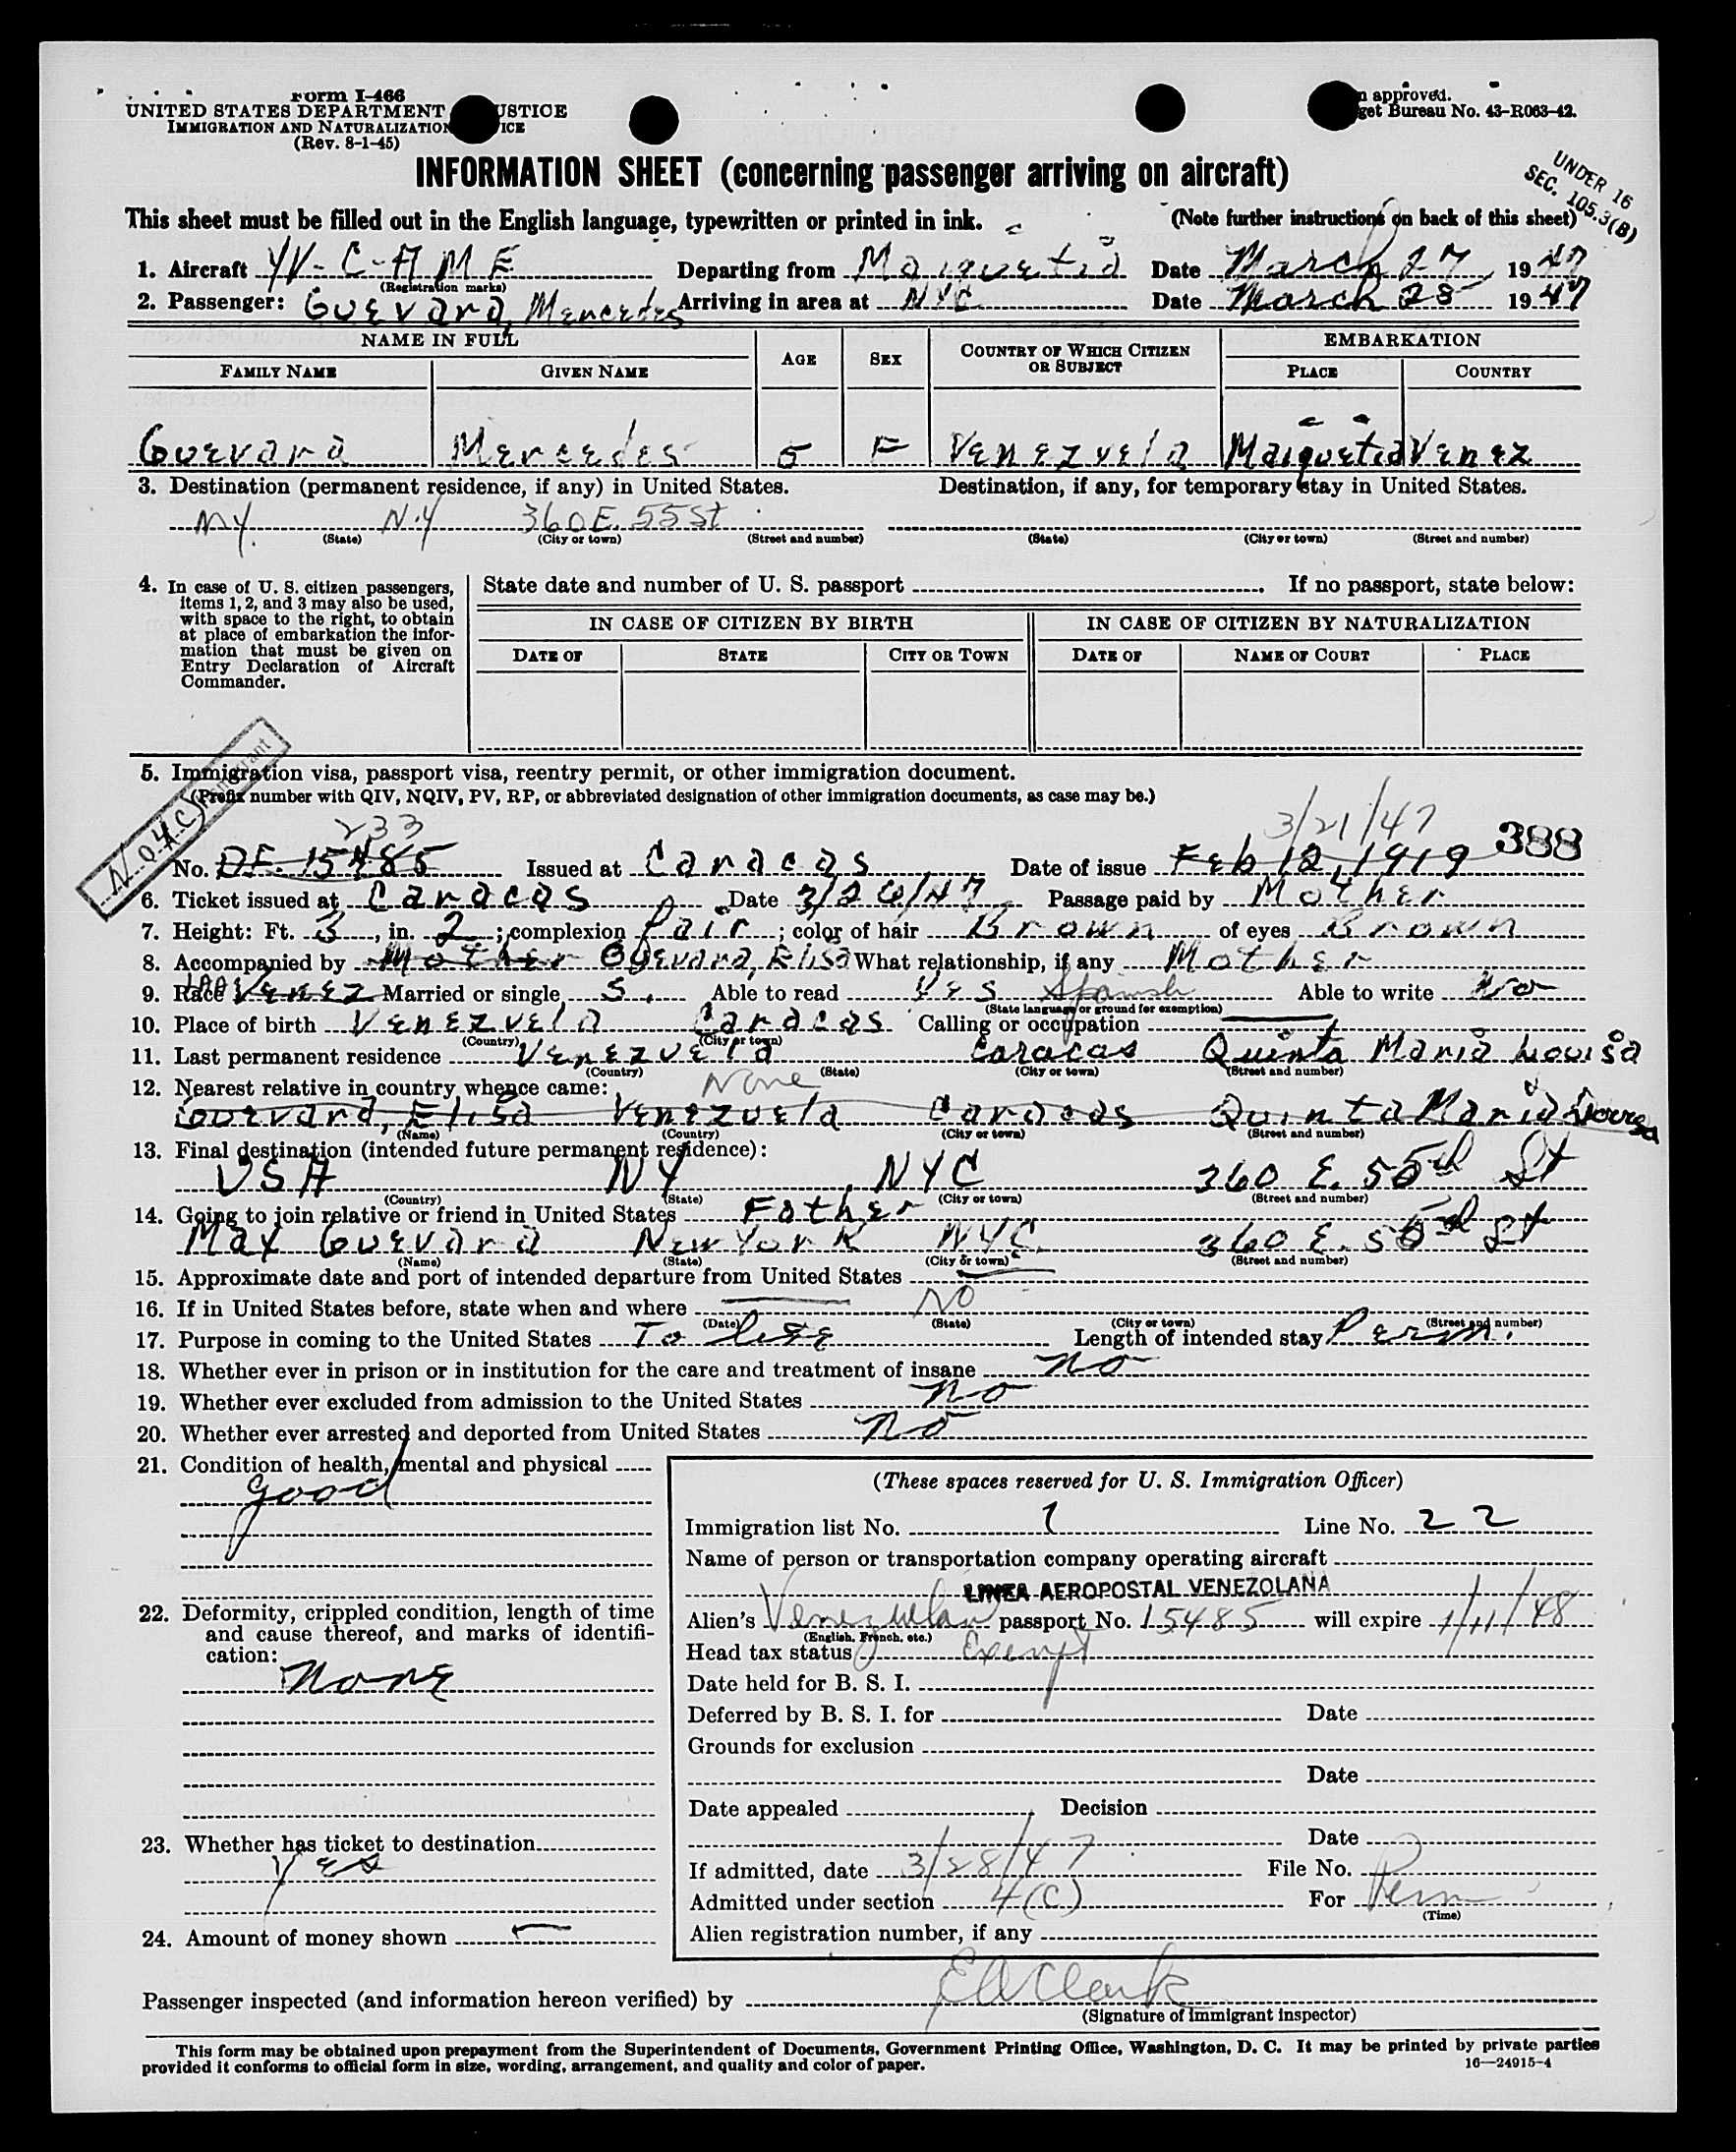 Form I-466
UNITED STATES DEPARTMENT USTICE
IMMIGRATION AND NATURALIZATION ICE
(Rev. 8-1-45)
n approved.
get Bureau No. 43-R063-42.
UNDER 16
SEC. 105.3(B)
INFORMATION SHEET (concerning passenger arriving on aircraft)
This sheet must be filled out in the English language, typewritten or printed in ink. (Note further instructions on back of this sheet)
1. Aircraft YV-C-AME Departing from Maiquetia Date March 27, 1947
(Registration marks)
2. Passenger: Guevara, Mercedes Arriving in area at NYC Date March 28 1947
NAME IN FULL AGE SEX COUNTRY OF WHICH CITIZEN OR SUBJECT EMBARKATION
FAMILY NAME GIVEN NAME PLACE COUNTRY
Guevara Mercedes 5 F Venezuela Maiquetia Venez
3. Destination (permanent residence, if any) in United States. Destination, if any, for temporary stay in United States.
NY. N.Y 360 E. 55 St
(State) (City or town) (Street and number) (State) (City or town) (Street and number)
4. In case of U. S. citizen passengers, items 1, 2, and 3 may also be used, with space to the right, to obtain at place of embarkation the information that must be given on Entry Declaration of Aircraft Commander.
State date and number of U. S. passport . If no passport, state below:
IN CASE OF CITIZEN BY BIRTH IN CASE OF CITIZEN BY NATURALIZATION
DATE OF STATE CITY OR TOWN DATE OF NAME OF COURT PLACE
5. Immigration visa, passport visa, reentry permit, or other immigration document.
(Prefix number with QIV, NQIV, PV, RP, or abbreviated designation of other immigration documents, as case may be.)
N.Q 4(C)
233 3/21/47 388
No. DF. 15485 Issued at Caracas Date of issue Feb 12, 1919
6. Ticket issued at Caracas Date 3/26/47 Passage paid by Mother
7. Height: Ft. 3, in. 2; complexion fair; color of hair Brown of eyes Brown
8. Accompanied by Mother Guevara, Elisa What relationship, if any Mother
9. Race Venez Married or single S. Able to read Yes Spanish Able to write No
(State language or ground for exemption)
10. Place of birth Venezuela Caracas Calling or occupation
(Country) (City or town)
11. Last permanent residence Venezuela Caracas Quinta Maria Louisa
(Country) (State) (City or town) (Street and number)
12. Nearest relative in country whence came: None
Guevara, Elisa Venezuela Caracas Quinta Maria Louisa
(Name) (Country) (City or town) (Street and number)
13. Final destination (intended future permanent residence):
USA NY NYC 360 E. 55th St
(Country) (State) (City or town) (Street and number)
14. Going to join relative or friend in United States Father
Max Guevara New York NYC. 360 E. 55th St
(Name) (State) (City or town) (Street and number)
15. Approximate date and port of intended departure from United States
16. If in United States before, state when and where No
(Date) (State) (City or town) (Street and number)
17. Purpose in coming to the United States To live Length of intended stay Perm.
18. Whether ever in prison or in institution for the care and treatment of insane no
19. Whether ever excluded from admission to the United States no
20. Whether ever arrested and deported from United States no
21. Condition of health, mental and physical
good
22. Deformity, crippled condition, length of time and cause thereof, and marks of identification:
None
23. Whether has ticket to destination
Yes
24. Amount of money shown
(These spaces reserved for U. S. Immigration Officer)
Immigration list No. 1 Line No. 22
Name of person or transportation company operating aircraft
LINEA AEROPOSTAL VENEZOLANA
Alien's Venezuelan passport No. 15485 will expire 1/11/48
(English, French, etc.)
Head tax status Exempt
Date held for B. S. I.
Deferred by B. S. I. for Date
Grounds for exclusion
Date
Date appealed Decision
Date
If admitted, date 3/28/47 File No.
Admitted under section 4(C) For Perm
(Time)
Alien registration number, if any
Passenger inspected (and information hereon verified) by EAClark
(Signature of Immigrant inspector)
This form may be obtained upon prepayment from the Superintendent of Documents, Government Printing Office, Washington, D. C. It may be printed by private parties
provided it conforms to official form in size, wording, arrangement, and quality and color of paper. 16—24915-4